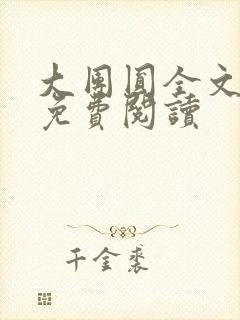 大團圓全文
免費閱讀
千金裘